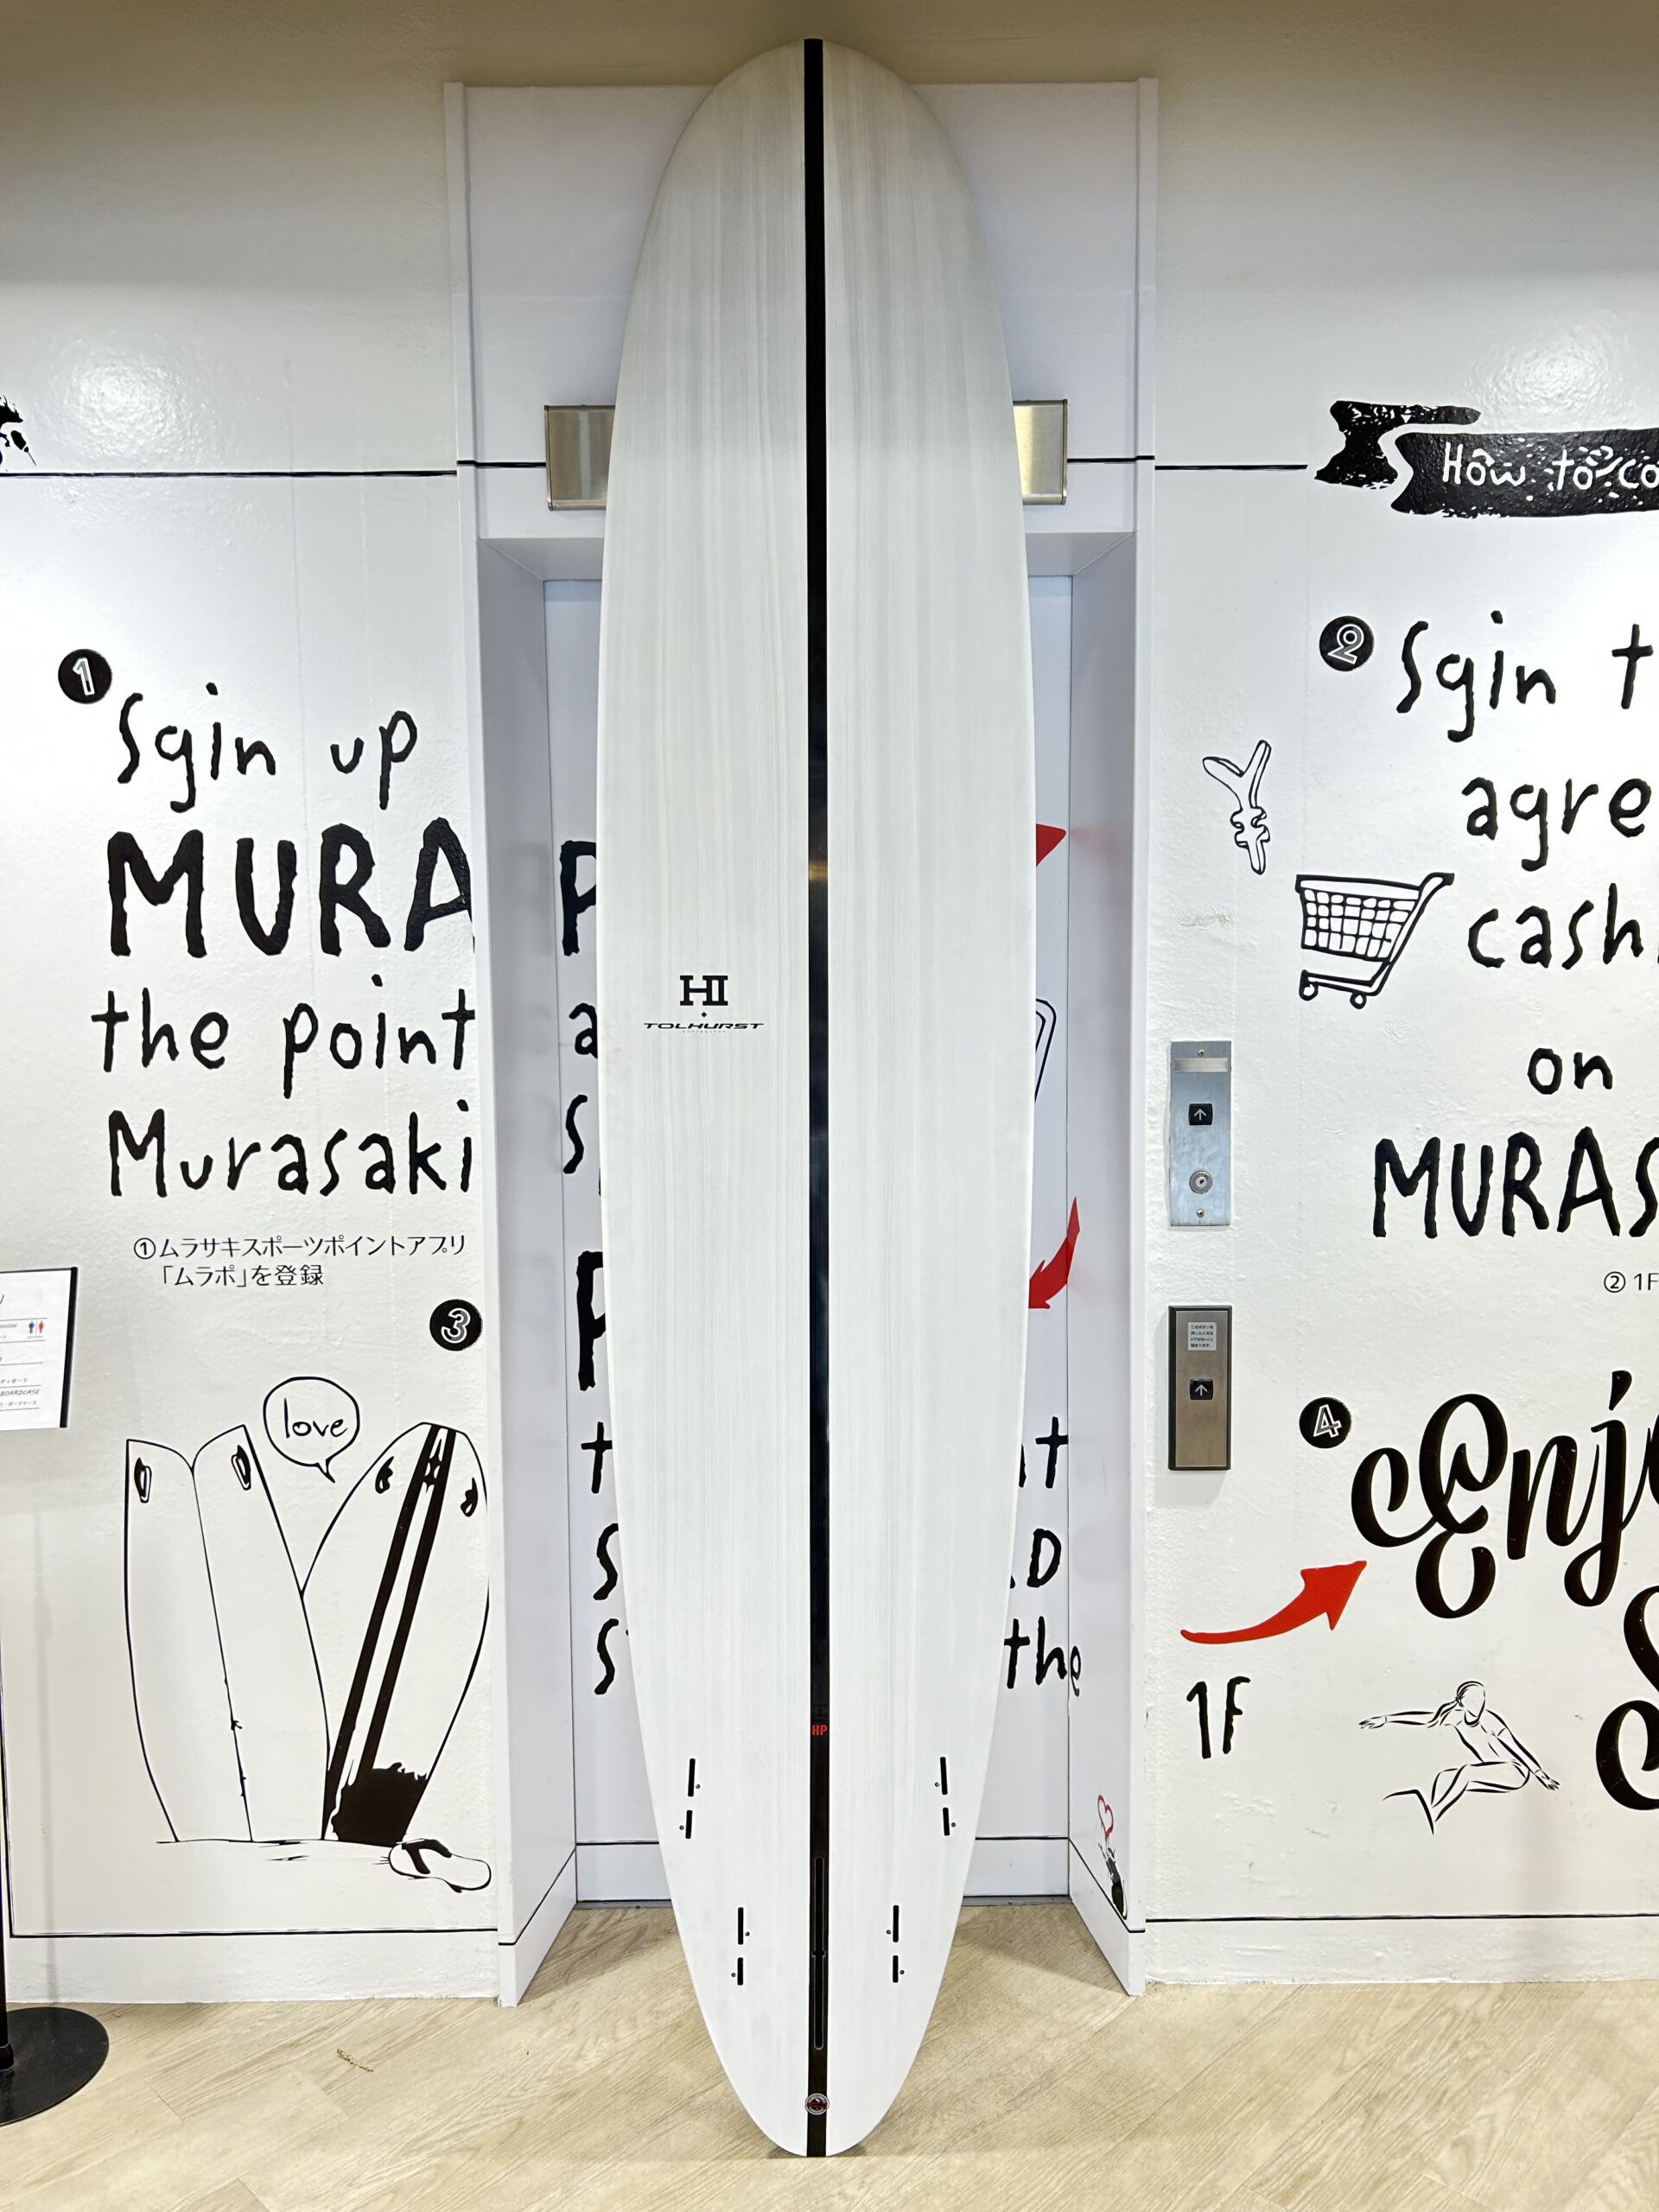 How to co
1
Sgin up
MURA
the point
Murasaki
①ムラサキスポーツポイントアプリ
「ムラポ」を登録
3
love
BOARDCASE
P
a
s
P
t
s
s
HI
TOLHURST
HP
nt
D
the
2
Sgin t
agre
cash
on
MURAS
② 1F
4
Enj
S
1F